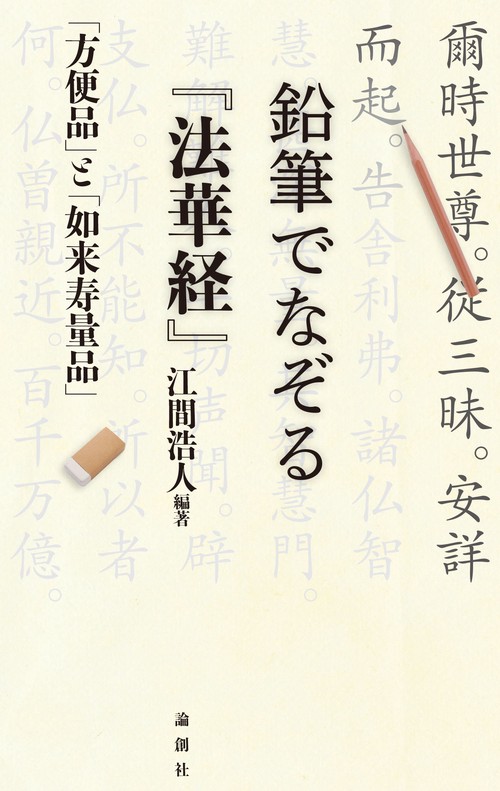 爾時世尊。従三昧。安詳
而起。告舎利弗。諸仏智
慧。
慧門。
難解
切声聞。辟
支仏。所不能知。所以者
何。仏曽親近。百千万億。
鉛筆でなぞる
『法華経』
江間浩人 編著
「方便品」と「如来寿量品」
論創社